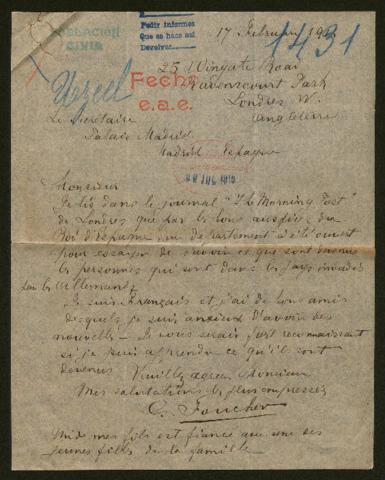 POBLACIÓN
CIVIL
Pedir informes
Que se hace así
Devolver
17 February 19
1431
Urgel
Fecha
e.a.e.
25 Wingate Road
Ravenscourt Park
Londres W.
Angleterre
Le Secrétaire
Palais Madrid
Madrid Espagne
Monsieur
Je lis dans le journal "The Morning Post"
de Londres que par les bons auspices du
Roi d'Espagne, un département a été ouvert
pour essayer de savoir ce que sont devenus
les personnes qui sont dans les pays envahis
par les Allemands
Je suis Français et j'ai de bons amis
desquels je suis anxieux d'avoir des
nouvelles - Je vous serais fort reconnaissant
si je puis apprendre ce qu'ils sont
devenus Veuillez agréer Monsieur
Mes salutations les plus empressées
C. Foucher
mes fils est fiancé avec une des
jeunes filles de la famille